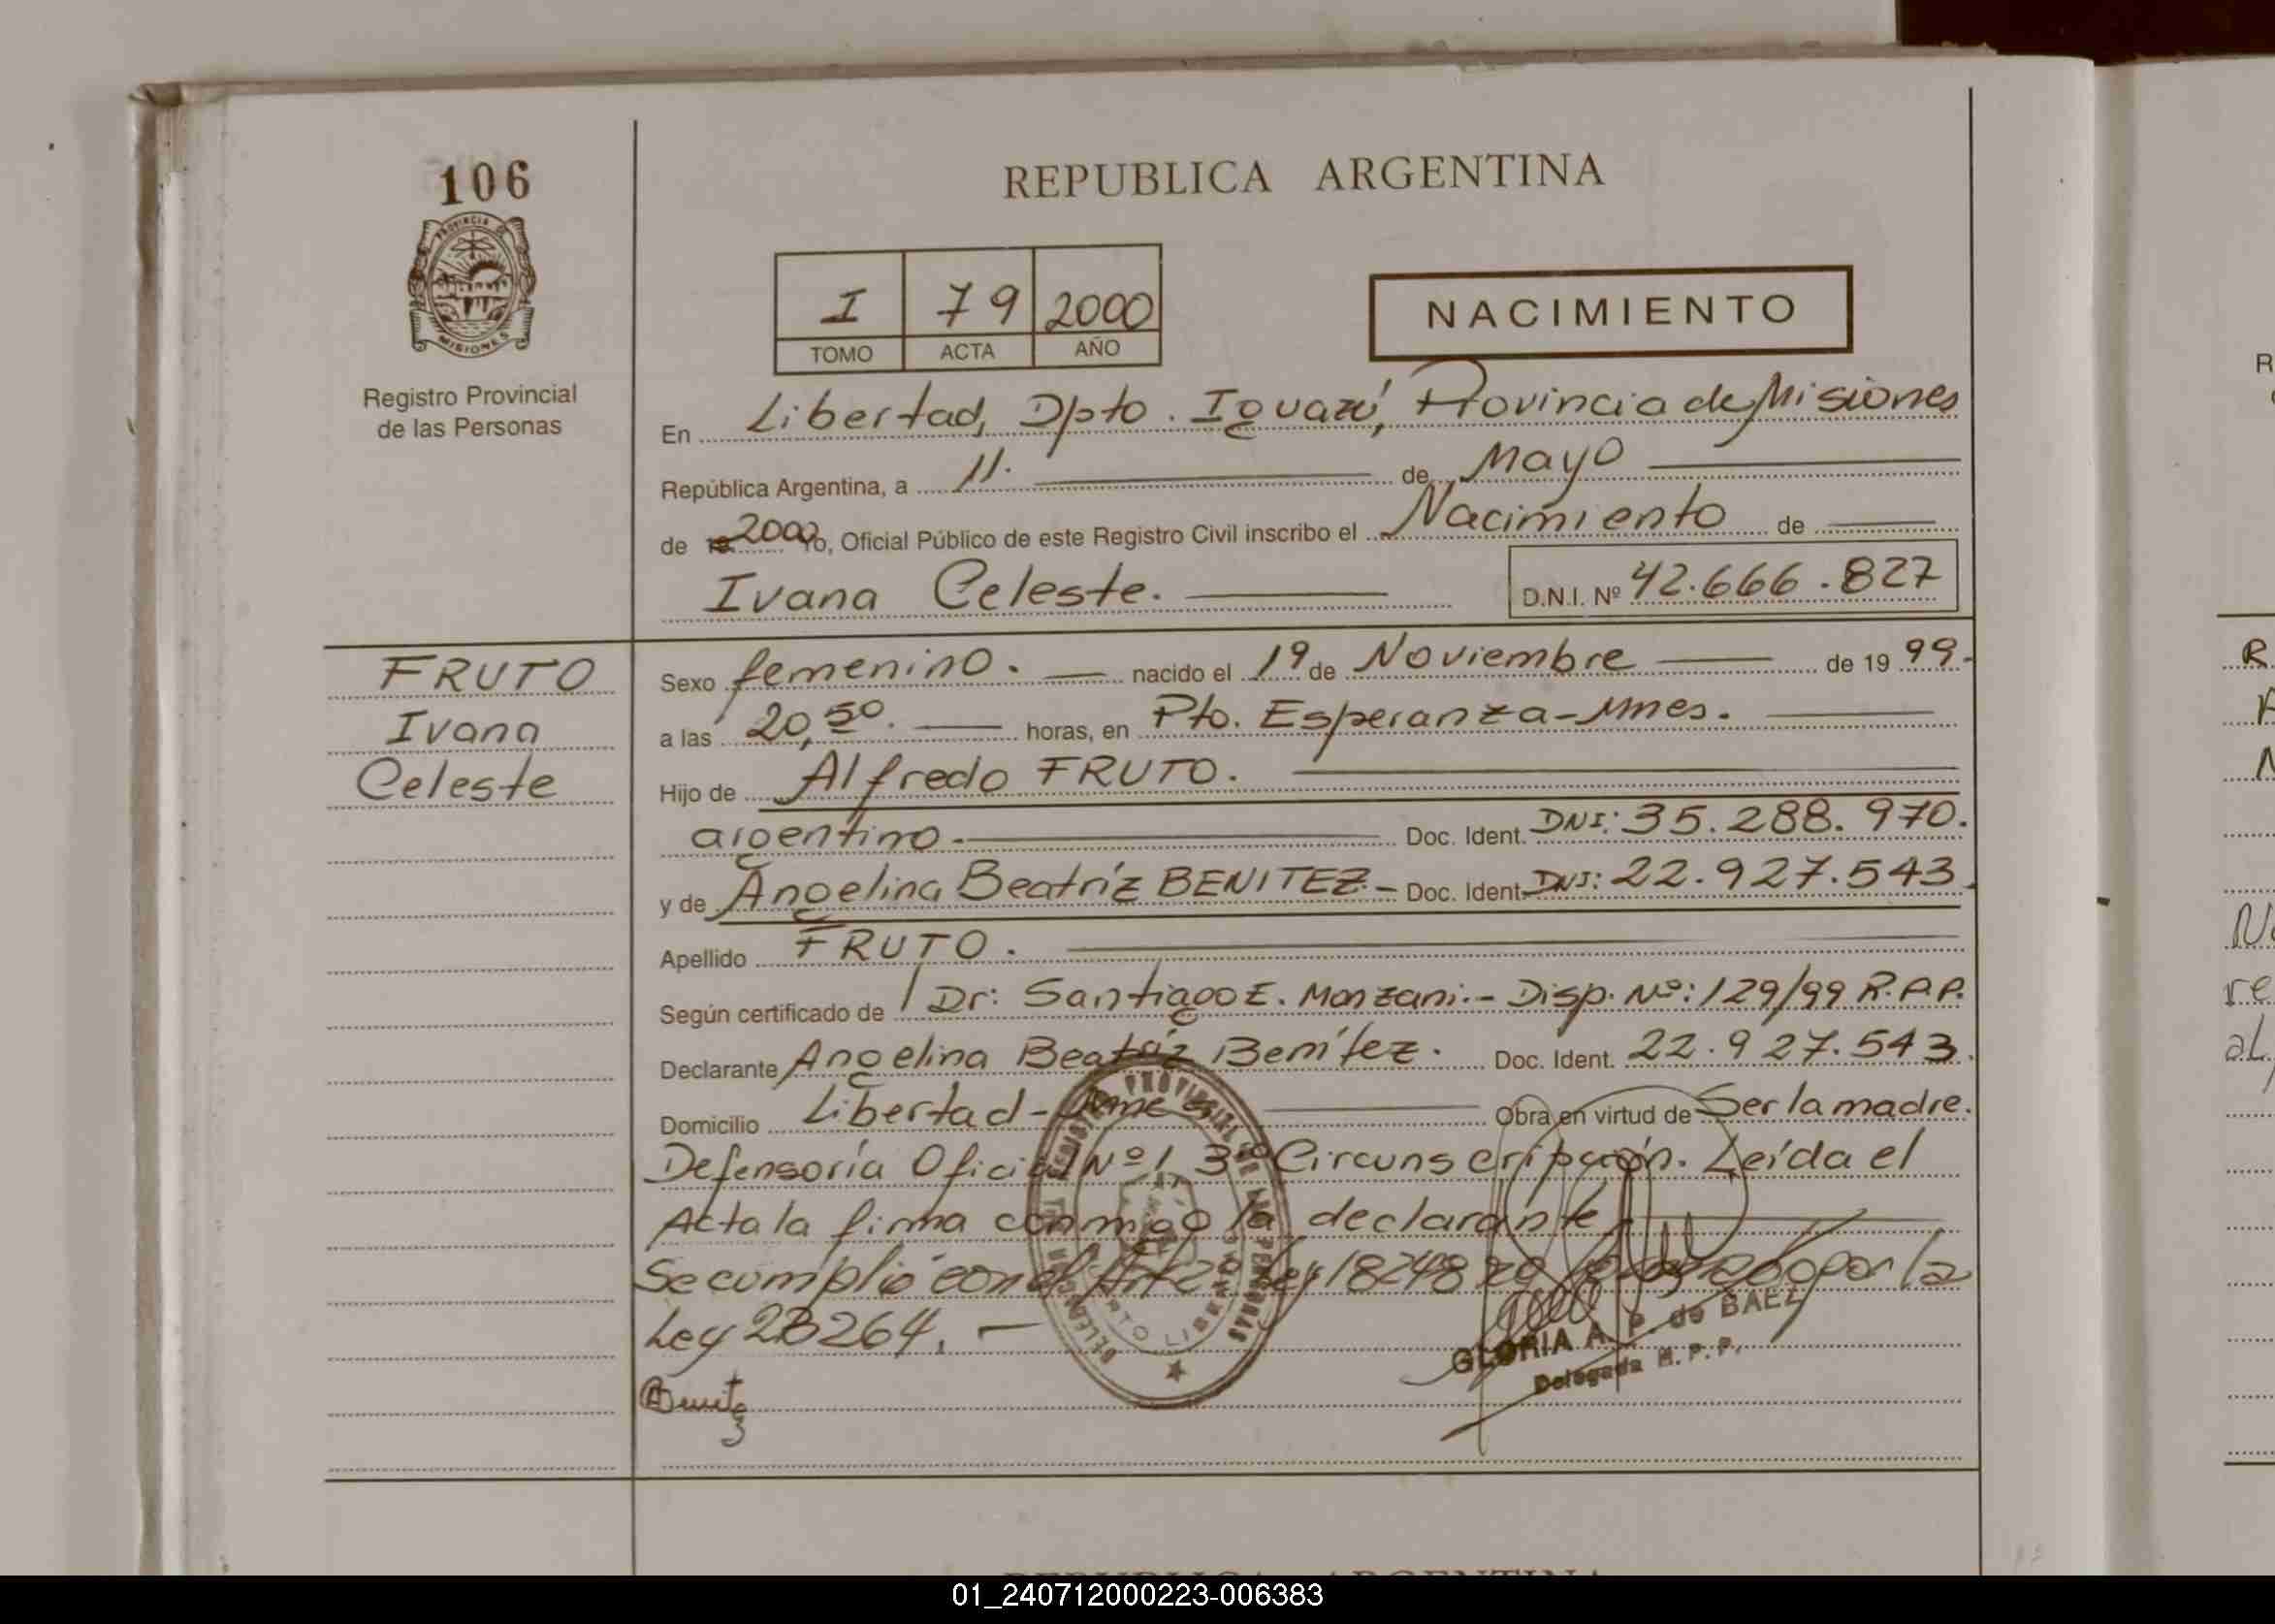 106
PROVINCIA DE
MISIONES
Registro Provincial
de las Personas
REPUBLICA ARGENTINA
I 79 2000
TOMO ACTA AÑO
NACIMIENTO
En Libertad, Dpto. Iguazú, Provincia de Misiones
República Argentina, a 11. de Mayo
de 19 2000 Yo, Oficial Público de este Registro Civil inscribo el Nacimiento de
Ivana Celeste. D.N.I. Nº 42.666.827
FRUTO
Ivana
Celeste
Sexo femenino. nacido el 19 de Noviembre de 19 99.
a las 20,50. horas, en Pto. Esperanza - Mnes.
Hijo de Alfredo FRUTO.
argentino. Doc. Ident. DNI: 35.288.970.
y de Angelina Beatríz BENITEZ.- Doc. Ident. DNI: 22.927.543.
Apellido FRUTO.
Según certificado de Dr: Santiago E. Monzani.- Disp. Nº: 129/99 R.P.P.
Declarante Angelina Beatríz Benítez. Doc. Ident. 22.927.543.
Domicilio Libertad - Mnes. Obra en virtud de Ser la madre.
Defensoría Oficial Nº 1, 3ra Circunscripción. Leída el
Acta la firma conmigo la declarante,
Se cumplió con el Art 2º Ley 18248 por la
Ley 23264. -
Benitez
GLORIA A. P. de BAEZ
Delegada R.P.P.
R
N
re
al
01_240712000223-006383